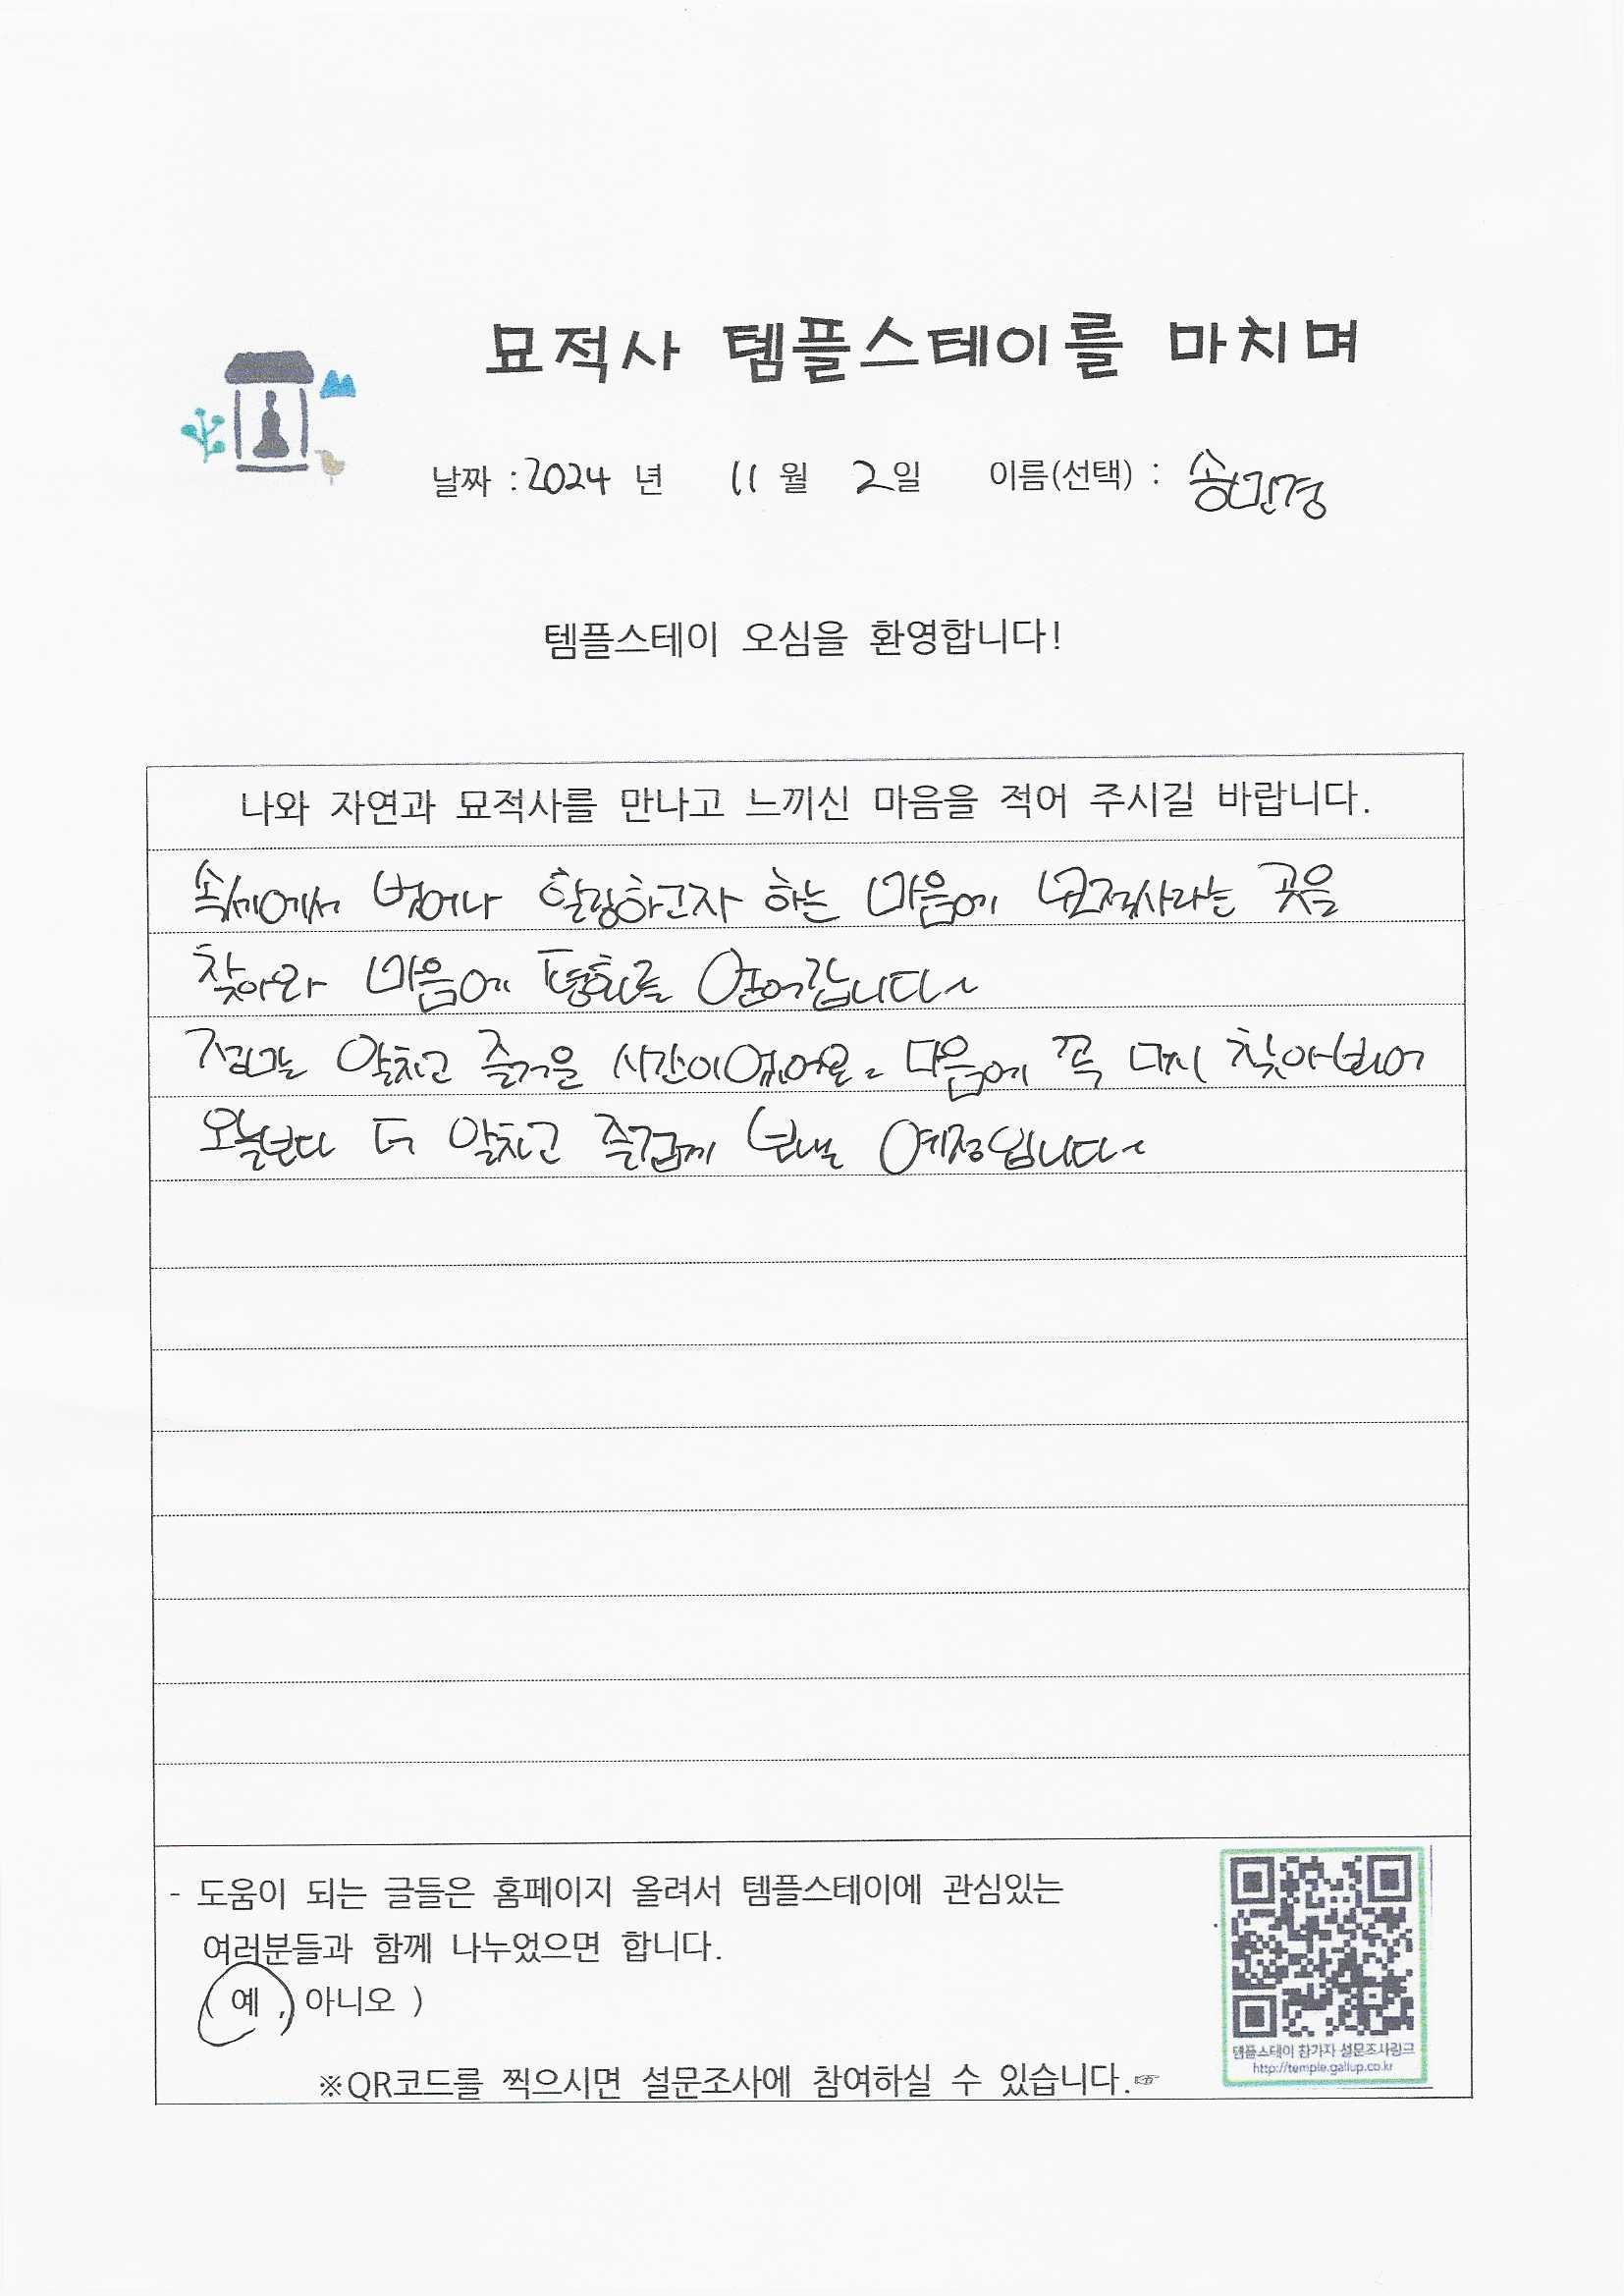 묘적사 템플스테이를 마치며
날짜 : 2024 년 11 월 2일 이름(선택) : 송민경
템플스테이 오심을 환영합니다!
나와 자연과 묘적사를 만나고 느끼신 마음을 적어 주시길 바랍니다.
속세에서 벗어나 힐링하고자 하는 마음에 묘적사라는 곳을
찾아와 마음에 평화를 얻어갑니다~
정말 알차고 즐거운 시간이었어요. 다음에 꼭 다시 찾아뵈어
오늘보다 더 알차고 즐겁게 보낼 예정입니다~
- 도움이 되는 글들은 홈페이지 올려서 템플스테이에 관심있는
여러분들과 함께 나누었으면 합니다.
( 예 , 아니오 )
템플스테이 참가자 설문조사링크
http://temple.gallup.co.kr
※QR코드를 찍으시면 설문조사에 참여하실 수 있습니다.☞